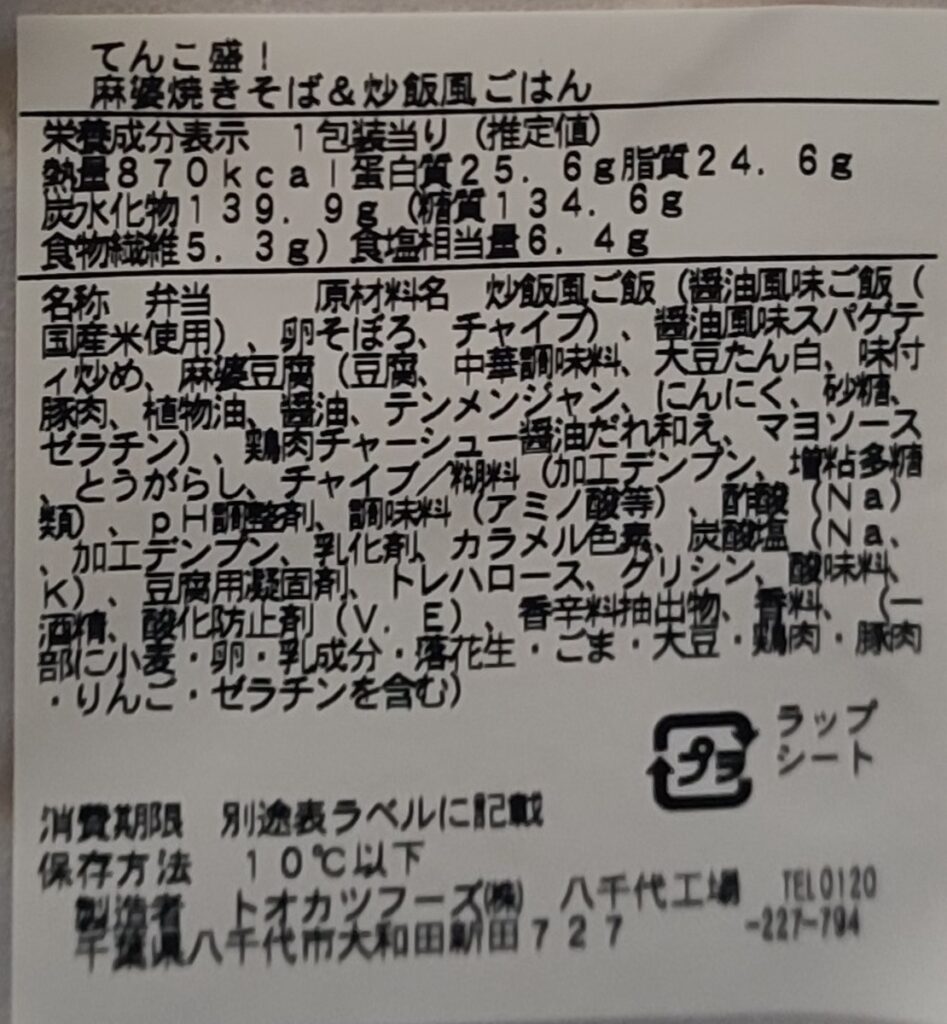 てんこ盛!
麻婆焼きそば&炒飯風ごはん
栄養成分表示 1包装当り(推定値)
熱量870kcal蛋白質25.6g脂質24.6g
炭水化物139.9g(糖質134.6g
食物繊維5.3g)食塩相当量6.4g
名称 弁当 原材料名 炒飯風ご飯(醤油風味ご飯(
国産米使用)、卵そぼろ、チャイブ)、醤油風味スパゲテ
ィ炒め、麻婆豆腐(豆腐、中華調味料、大豆たん白、味付
豚肉、植物油、醤油、テンメンジャン、にんにく、砂糖、
ゼラチン)、鶏肉チャーシュー醤油だれ和え、マヨソース
、とうがらし、チャイブ/糊料(加工デンプン、増粘多糖
類)、pH調整剤、調味料(アミノ酸等)、酢酸(Na)
、加工デンプン、乳化剤、カラメル色素、炭酸塩(Na、
K)、豆腐用凝固剤、トレハロース、グリシン、酸味料、
酒精、酸化防止剤(V.E)、香辛料抽出物、香料、(一
部に小麦・卵・乳成分・落花生・ごま・大豆・鶏肉・豚肉
・りんご・ゼラチンを含む)
プラ
ラップ
シート
消費期限 別途表ラベルに記載
保存方法 10℃以下
製造者 トオカツフーズ㈱ 八千代工場 TEL0120
千葉県八千代市大和田新田727 -227-794